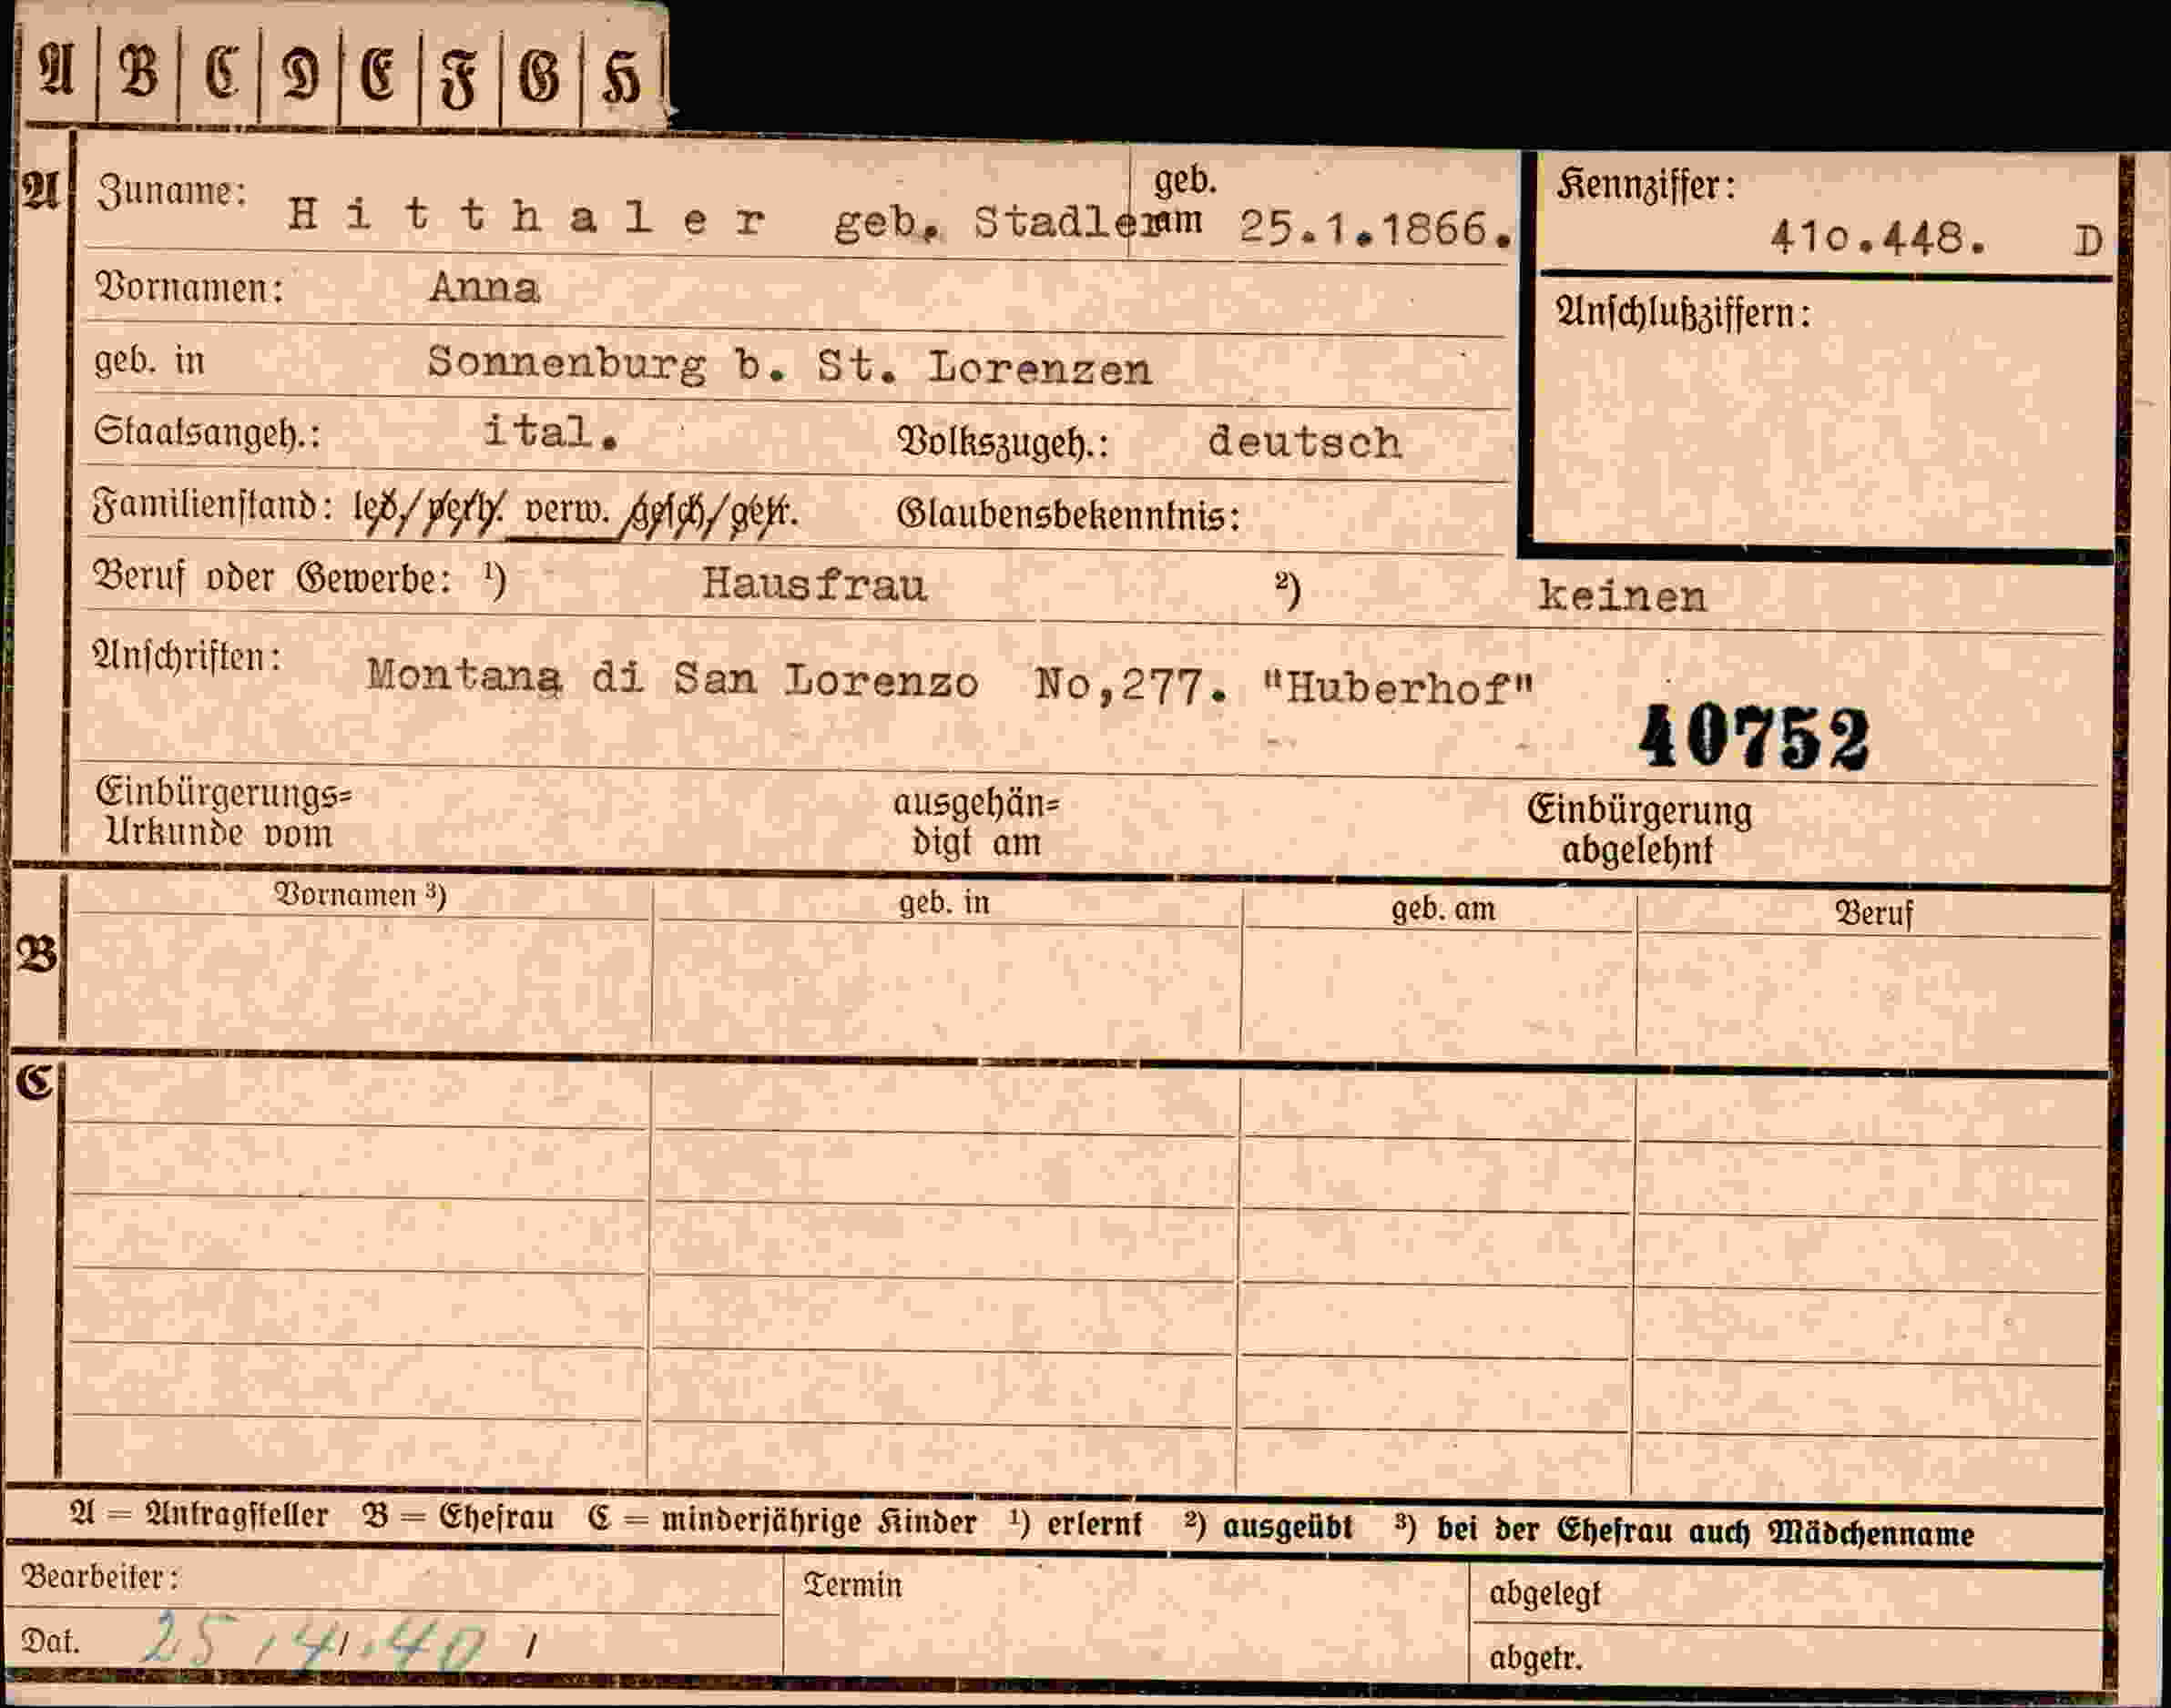 A B C D E F G H
A Zuname: Hitthaler geb. Stadler geb. am 25.1.1866. Kennziffer: 41o.448. D
Vornamen: Anna Anschlußziffern:
geb. in Sonnenburg b. St. Lorenzen
Staatsangeh.: ital. Volkszugeh.: deutsch
Familienstand: led./verh. verw. /gesch/getr. Glaubensbekenntnis:
Beruf oder Gewerbe: ¹) Hausfrau ²) keinen
Anschriften: Montana di San Lorenzo No,277. "Huberhof"
40752
Einbürgerungs= ausgehän= Einbürgerung
Urkunde vom digt am abgelehnt
Vornamen ³) geb. in geb. am Beruf
B
C
A = Antragsteller B = Ehefrau C = minderjährige Kinder ¹) erlernt ²) ausgeübt ³) bei der Ehefrau auch Mädchenname
Bearbeiter: Termin abgelegt
Dat. 25/4.40 abgetr.